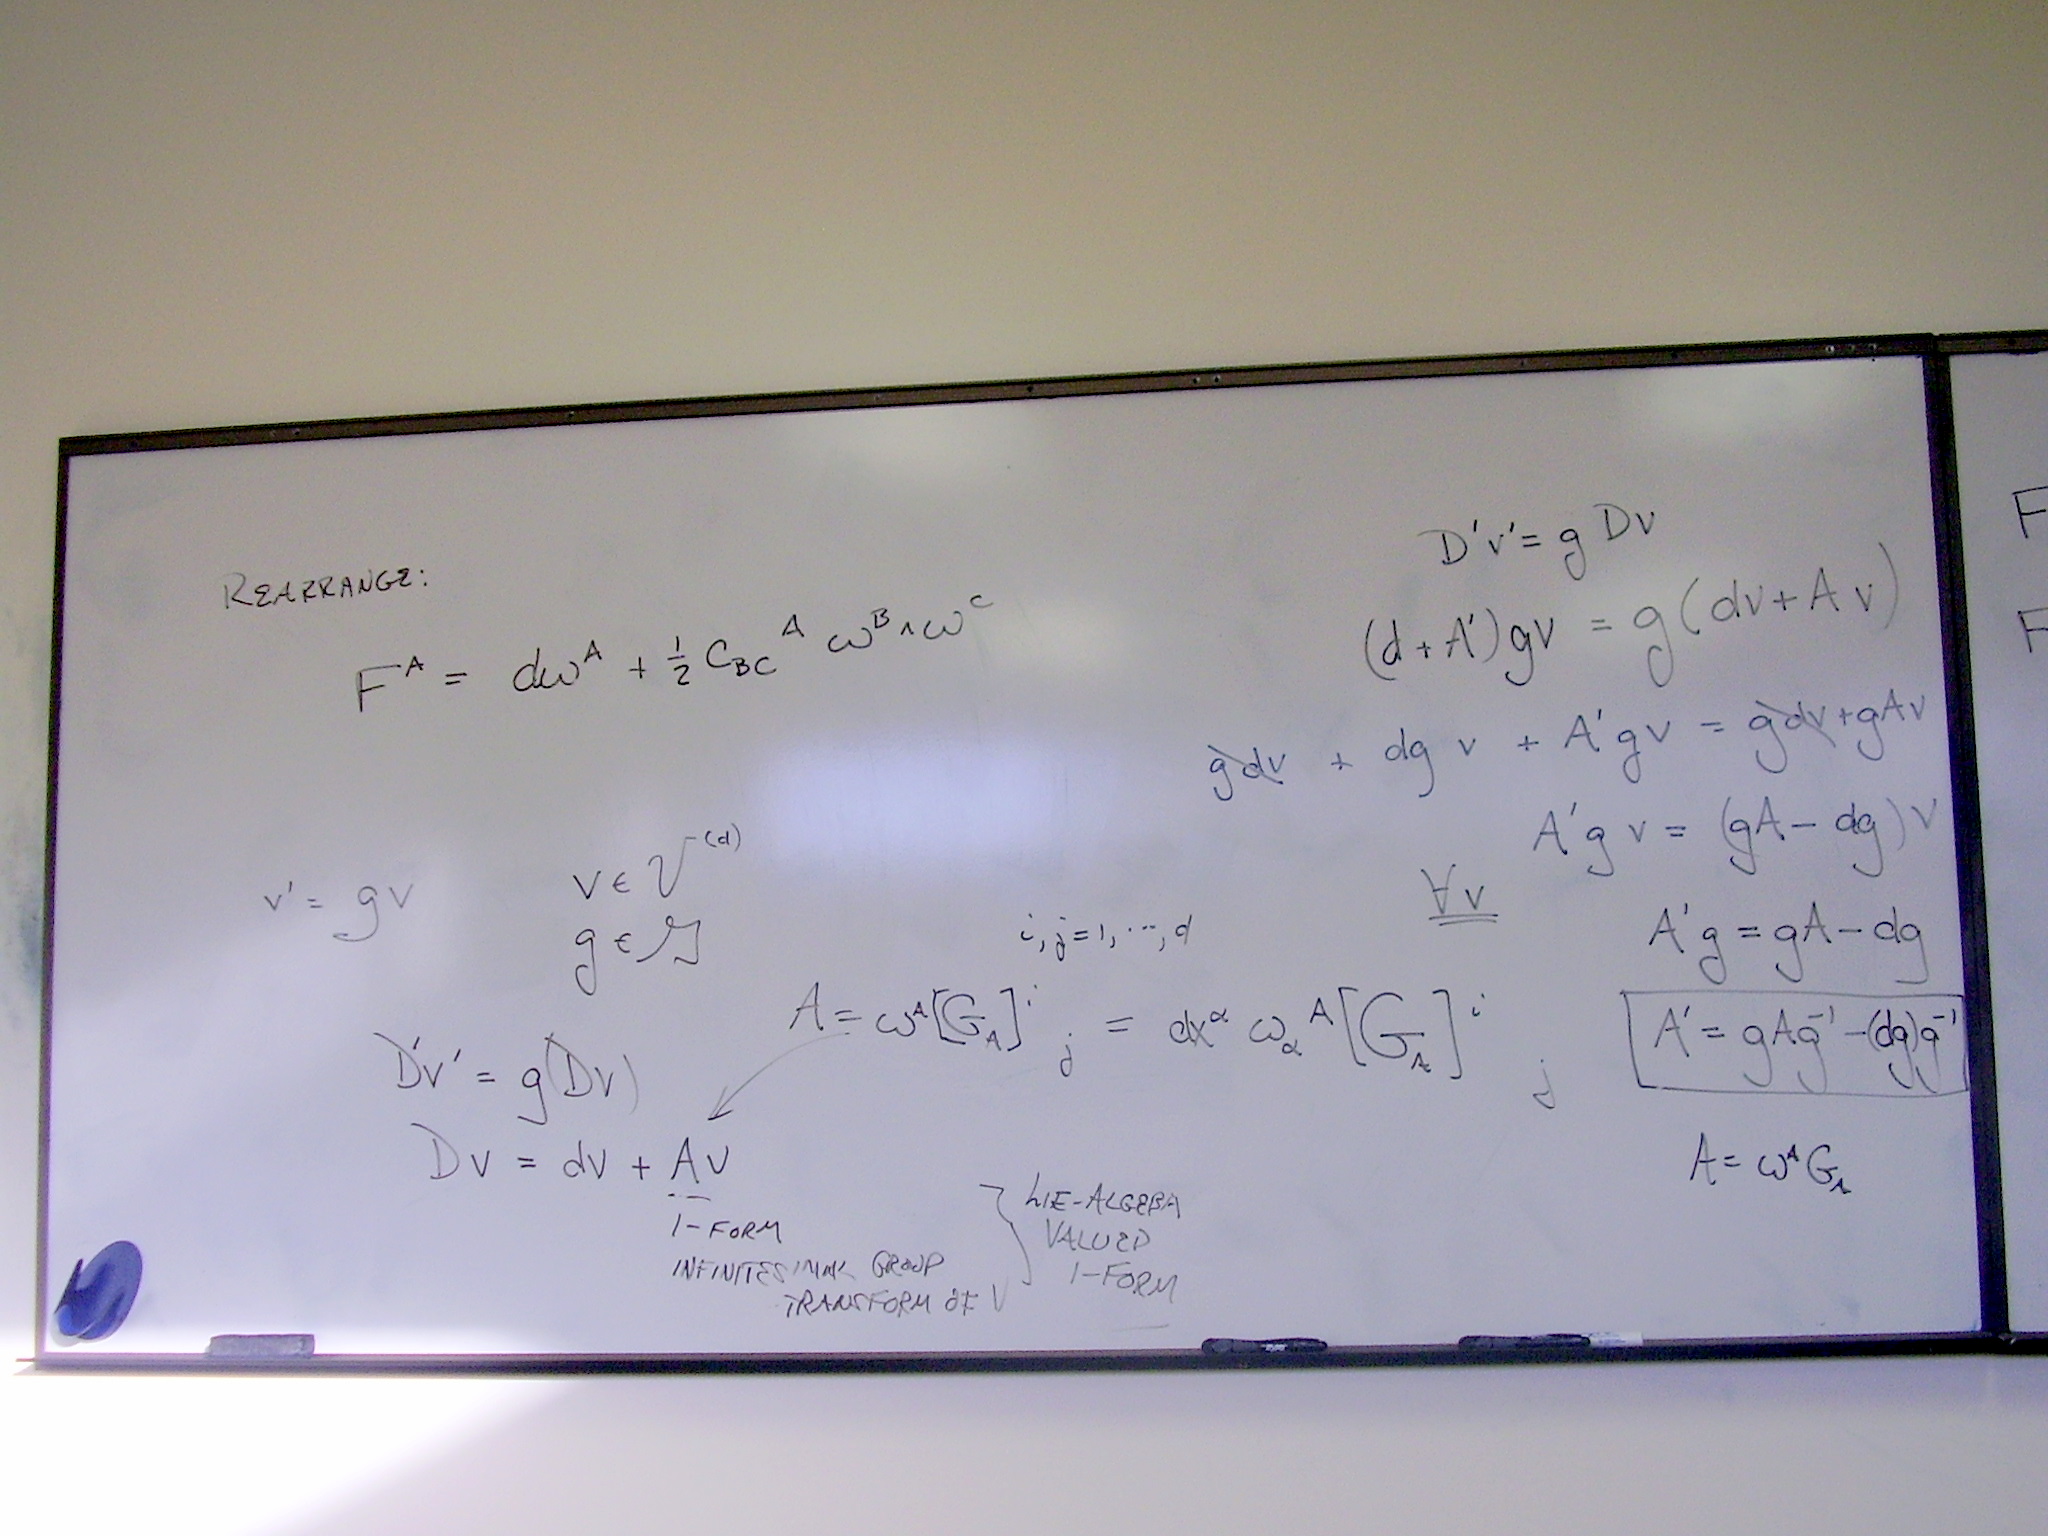 REARRANGE:
F^A = dω^A + ½ C_BC^A ω^B ∧ ω^C
v' = gv
v ∈ V^(d)
g ∈ 𝒢
i, j = 1, ..., d
A = ω^A [G_A]^i_j = dx^α ω_α^A [G_A]^i_j
D'v' = g(Dv)
Dv = dv + Av
1-FORM
INFINITESIMAL GROUP
TRANSFORM OF V
} LIE-ALGEBRA
VALUED
1-FORM
D'v' = g Dv
(d + A')gv = g(dv + Av)
gdv + dg v + A'gv = gdv + gAv
A'g v = (gA - dg)v
∀v
A'g = gA - dg
A' = gAg^-1 - (dg)g^-1
A = ω^A G_A
F
F